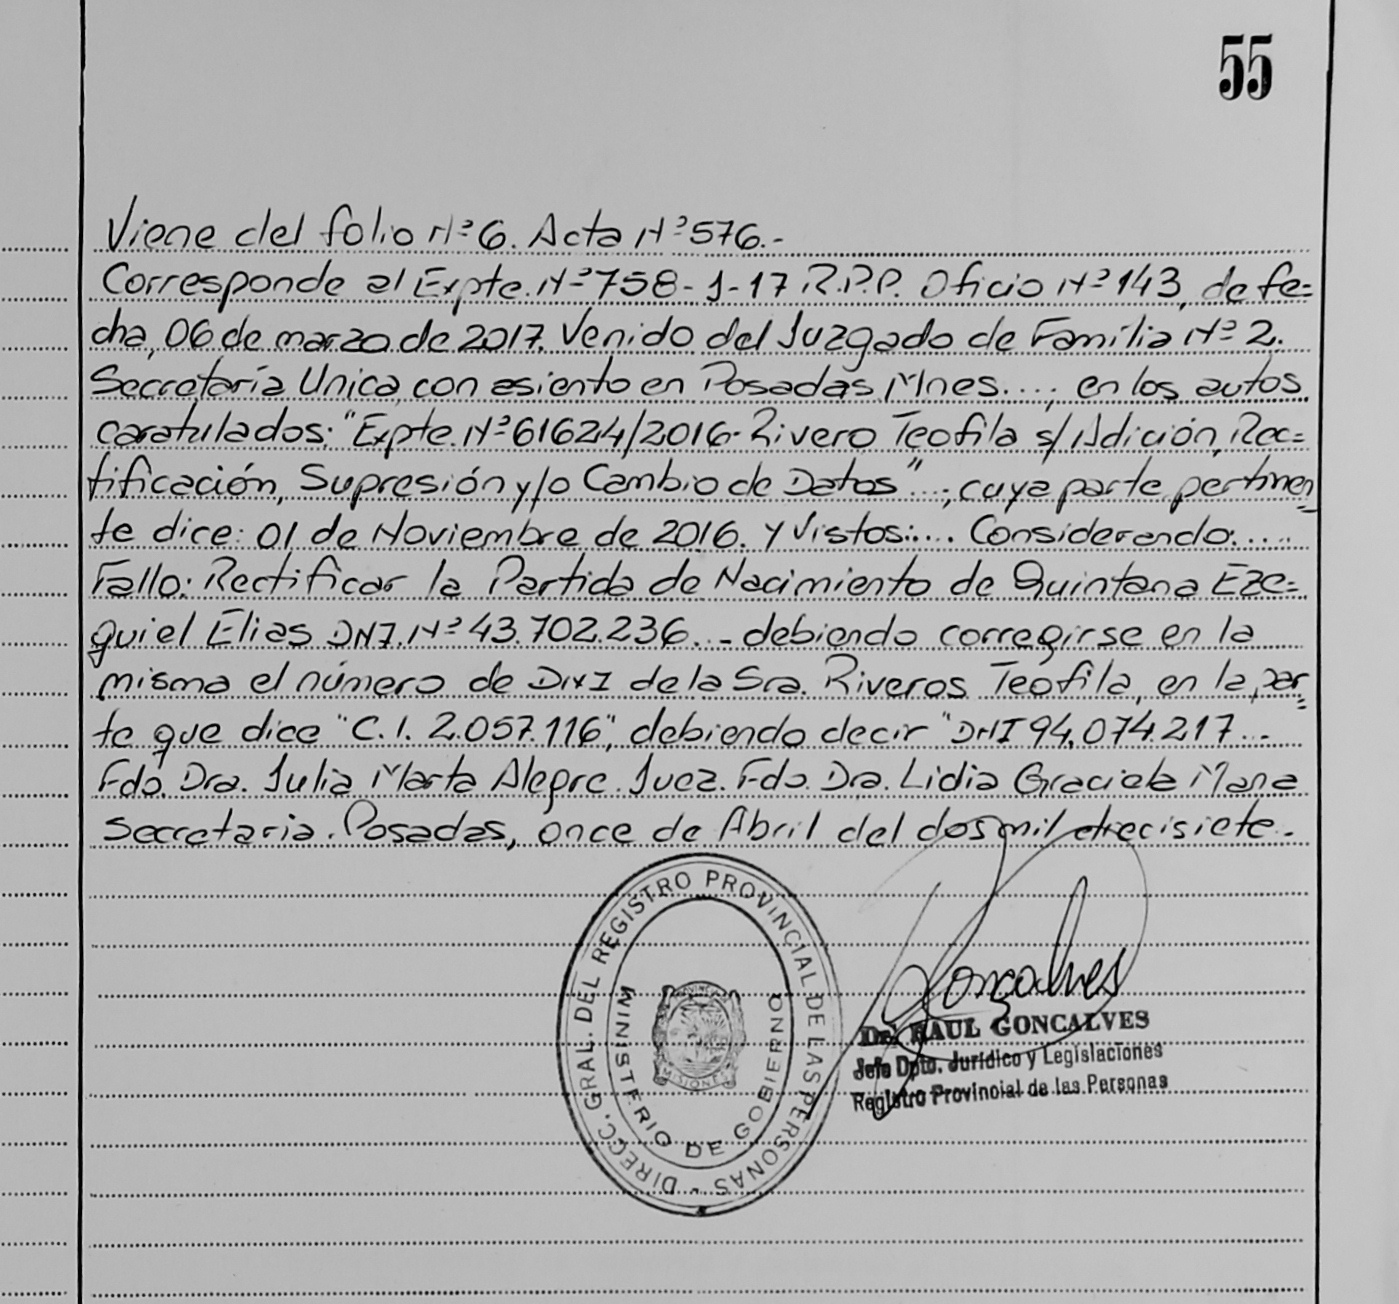 55
Viene del folio Nº 6. Acta Nº 576.-
Corresponde al Expte. Nº 758-J-17 R.P.P. Oficio Nº 143, de fe=
cha, 06 de marzo de 2017. Venido del Juzgado de Familia Nº 2.
Secretaría Unica, con asiento en Posadas Mnes...., en los autos
caratulados: "Expte. Nº 61624/2016- Rivero Teofila s/ Adición, Rec=
tificación, Supresión y/o Cambio de Datos"...; cuya parte pertinen=
te dice: 01 de Noviembre de 2016. y Vistos:.... Considerando:....
Fallo: Rectificar la Partida de Nacimiento de Quintana Eze=
quiel Elias DNI. Nº 43.702.236... debiendo corregirse en la
misma el número de DNI de la Sra. Riveros Teofila, en la par=
te que dice "C.I. 2.057.116", debiendo decir "DNI 94.074.217...
Fdo. Dra. Julia Marta Alegre. Juez. Fdo. Dra. Lidia Graciela Mana
Secretaria. Posadas, once de Abril del dos mil diecisiete.
DIRECC. GRAL. DEL REGISTRO PROVINCIAL DE LAS PERSONAS -
MINISTERIO DE GOBIERNO
MISIONES
Goncalves
Dr. RAUL GONCALVES
Jefe Dpto. Jurídico y Legislaciones
Registro Provincial de las Personas